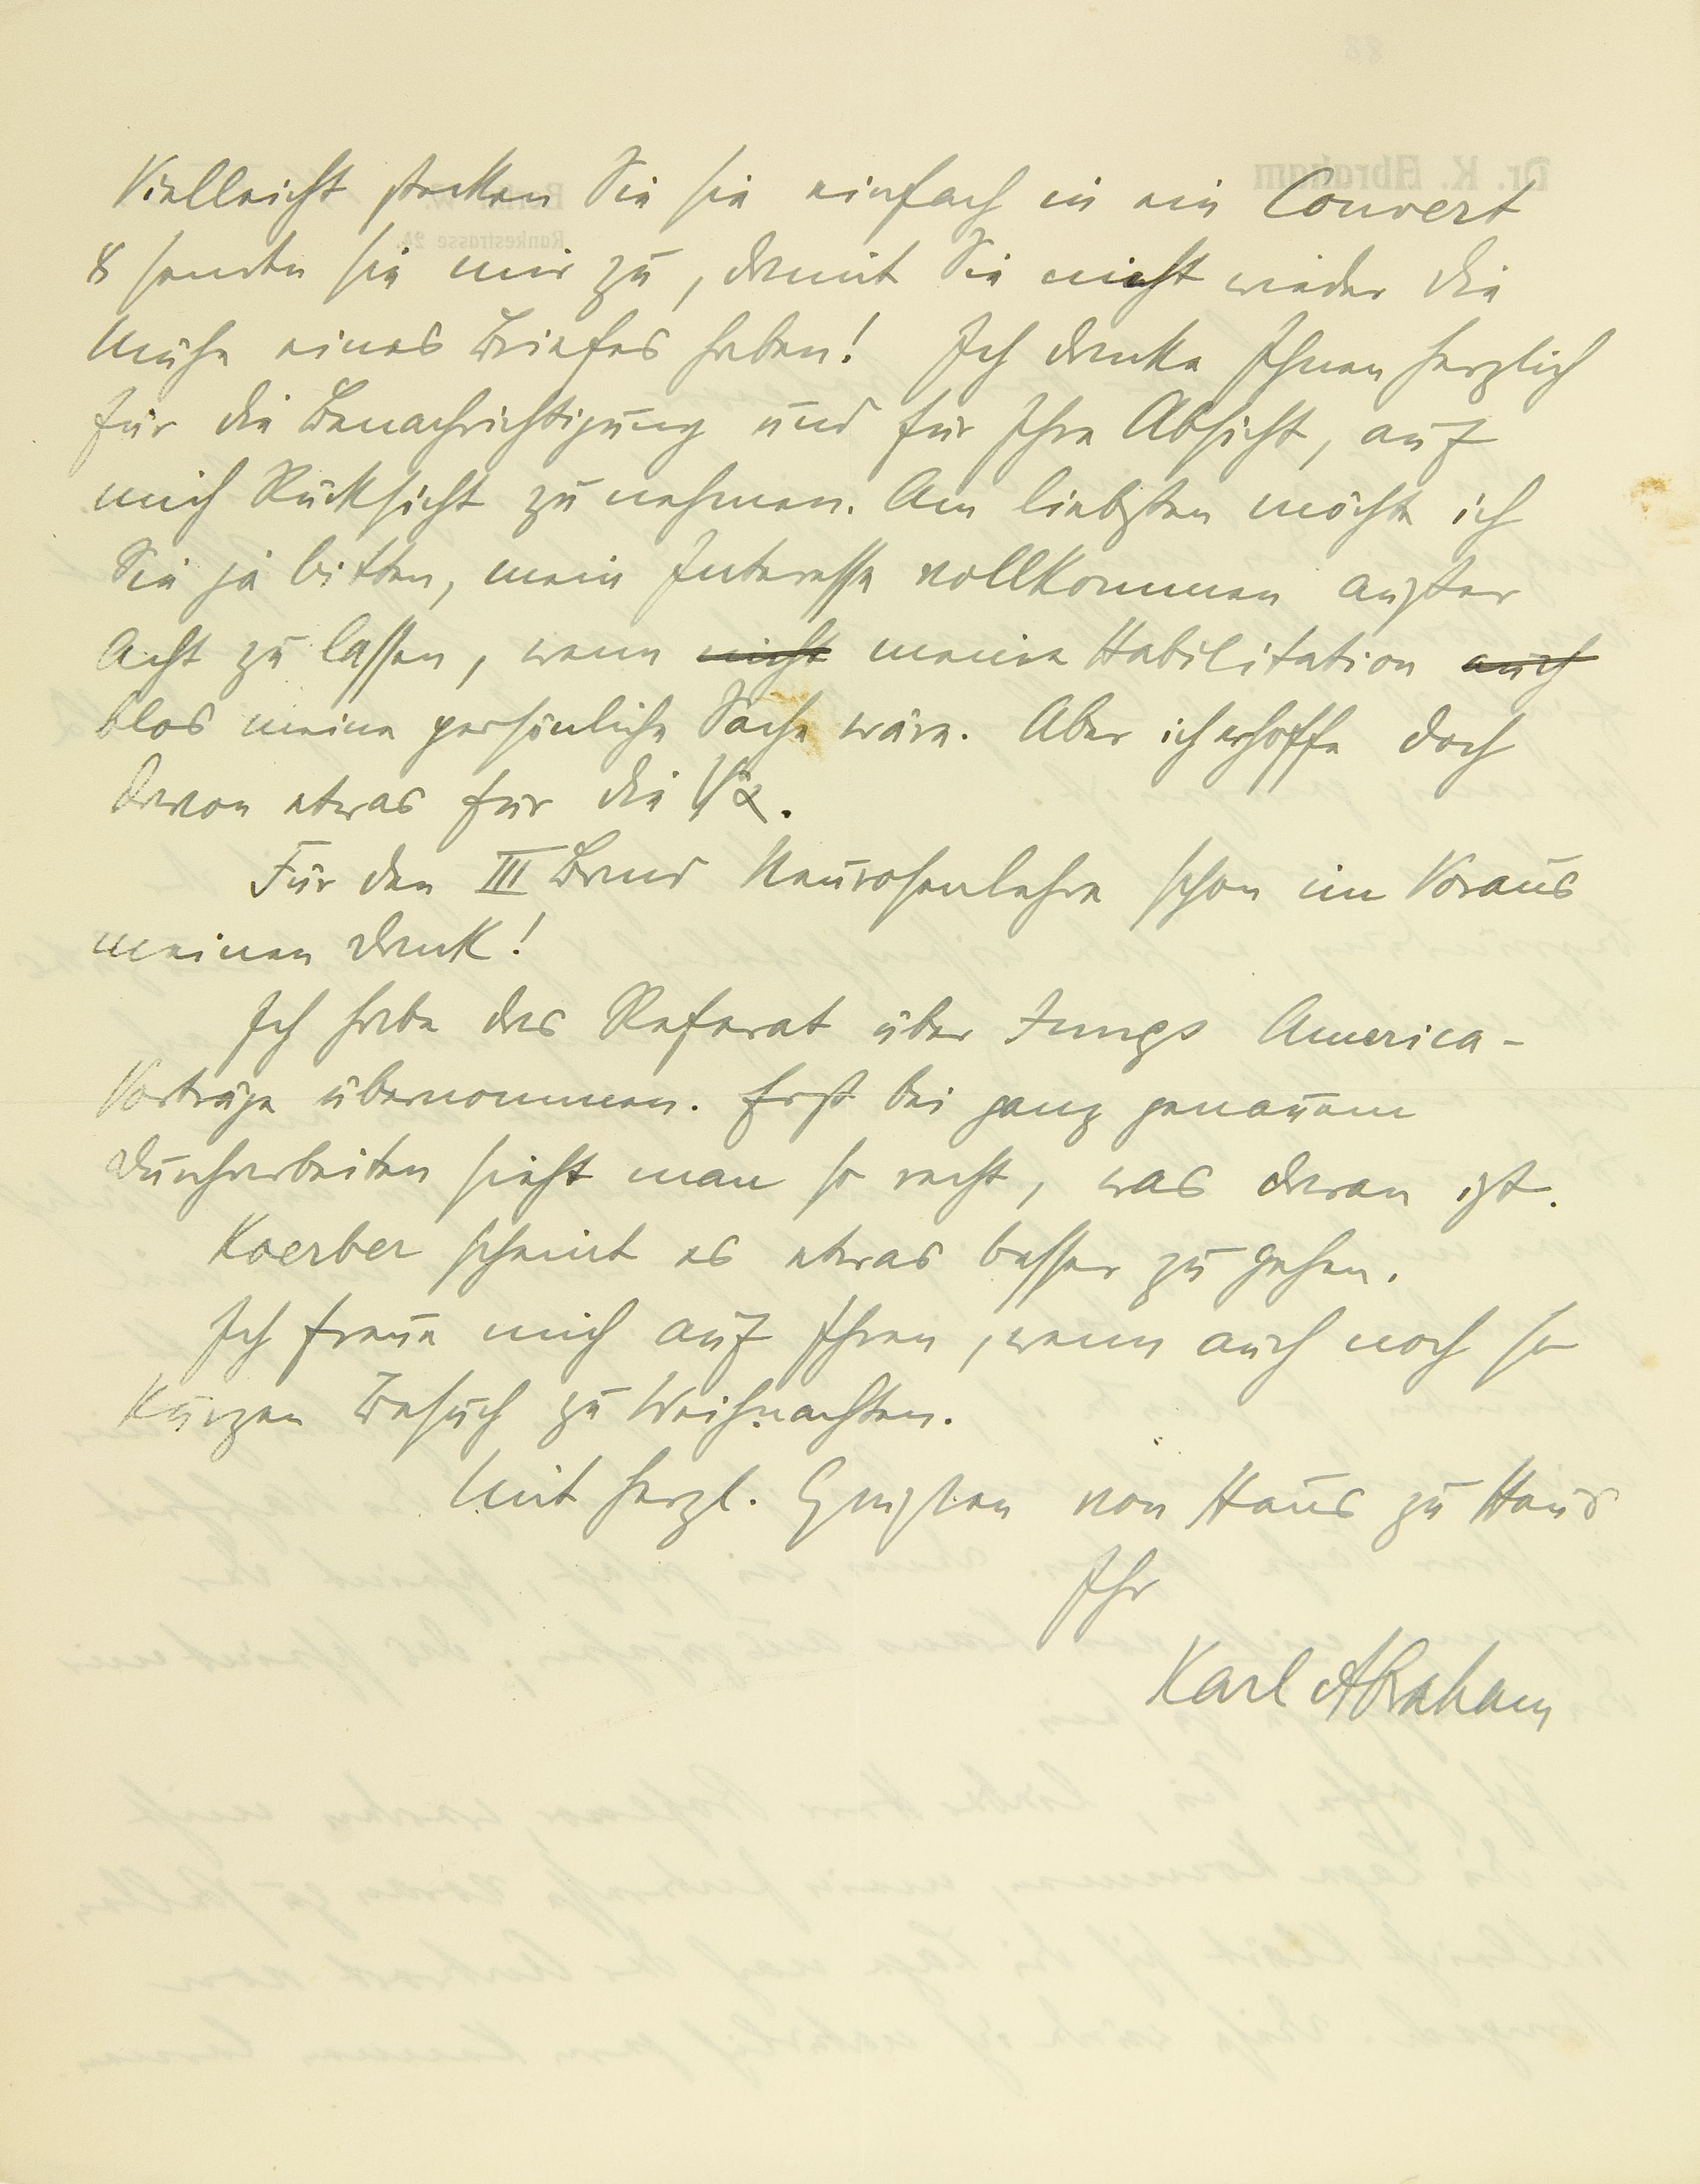 Vielleicht stecken Sie sie einfach in ein Couvert
& senden sie mir zu, damit Sie nicht wieder die
Mühe eines Briefes haben! Ich danke Ihnen herzlich
für die Benachrichtigung und für Ihre Absicht, auf
mich Rücksicht zu nehmen. Am liebsten möchte ich
Sie ja bitten, mein Interesse vollkommen außer
Acht zu lassen, wenn nicht meine Habilitation auch
blos meine persönliche Sache wäre. Aber ich erhoffe doch
davon etwas für die ΨΑ.
Für den III Band Neurosenlehre schon im Voraus
meinen Dank!
Ich habe das Referat über Jungs America-
Vorträge übernommen. Erst bei ganz genauem
Durcharbeiten sieht man so recht, was daran ist.
Koerber scheint es etwas besser zu gehen.
Ich freue mich auf Ihren, wenn auch noch so
kurzen Besuch zu Weihnachten.
Mit herzl. Grüßen von Haus zu Haus
Ihr
Karl Abraham